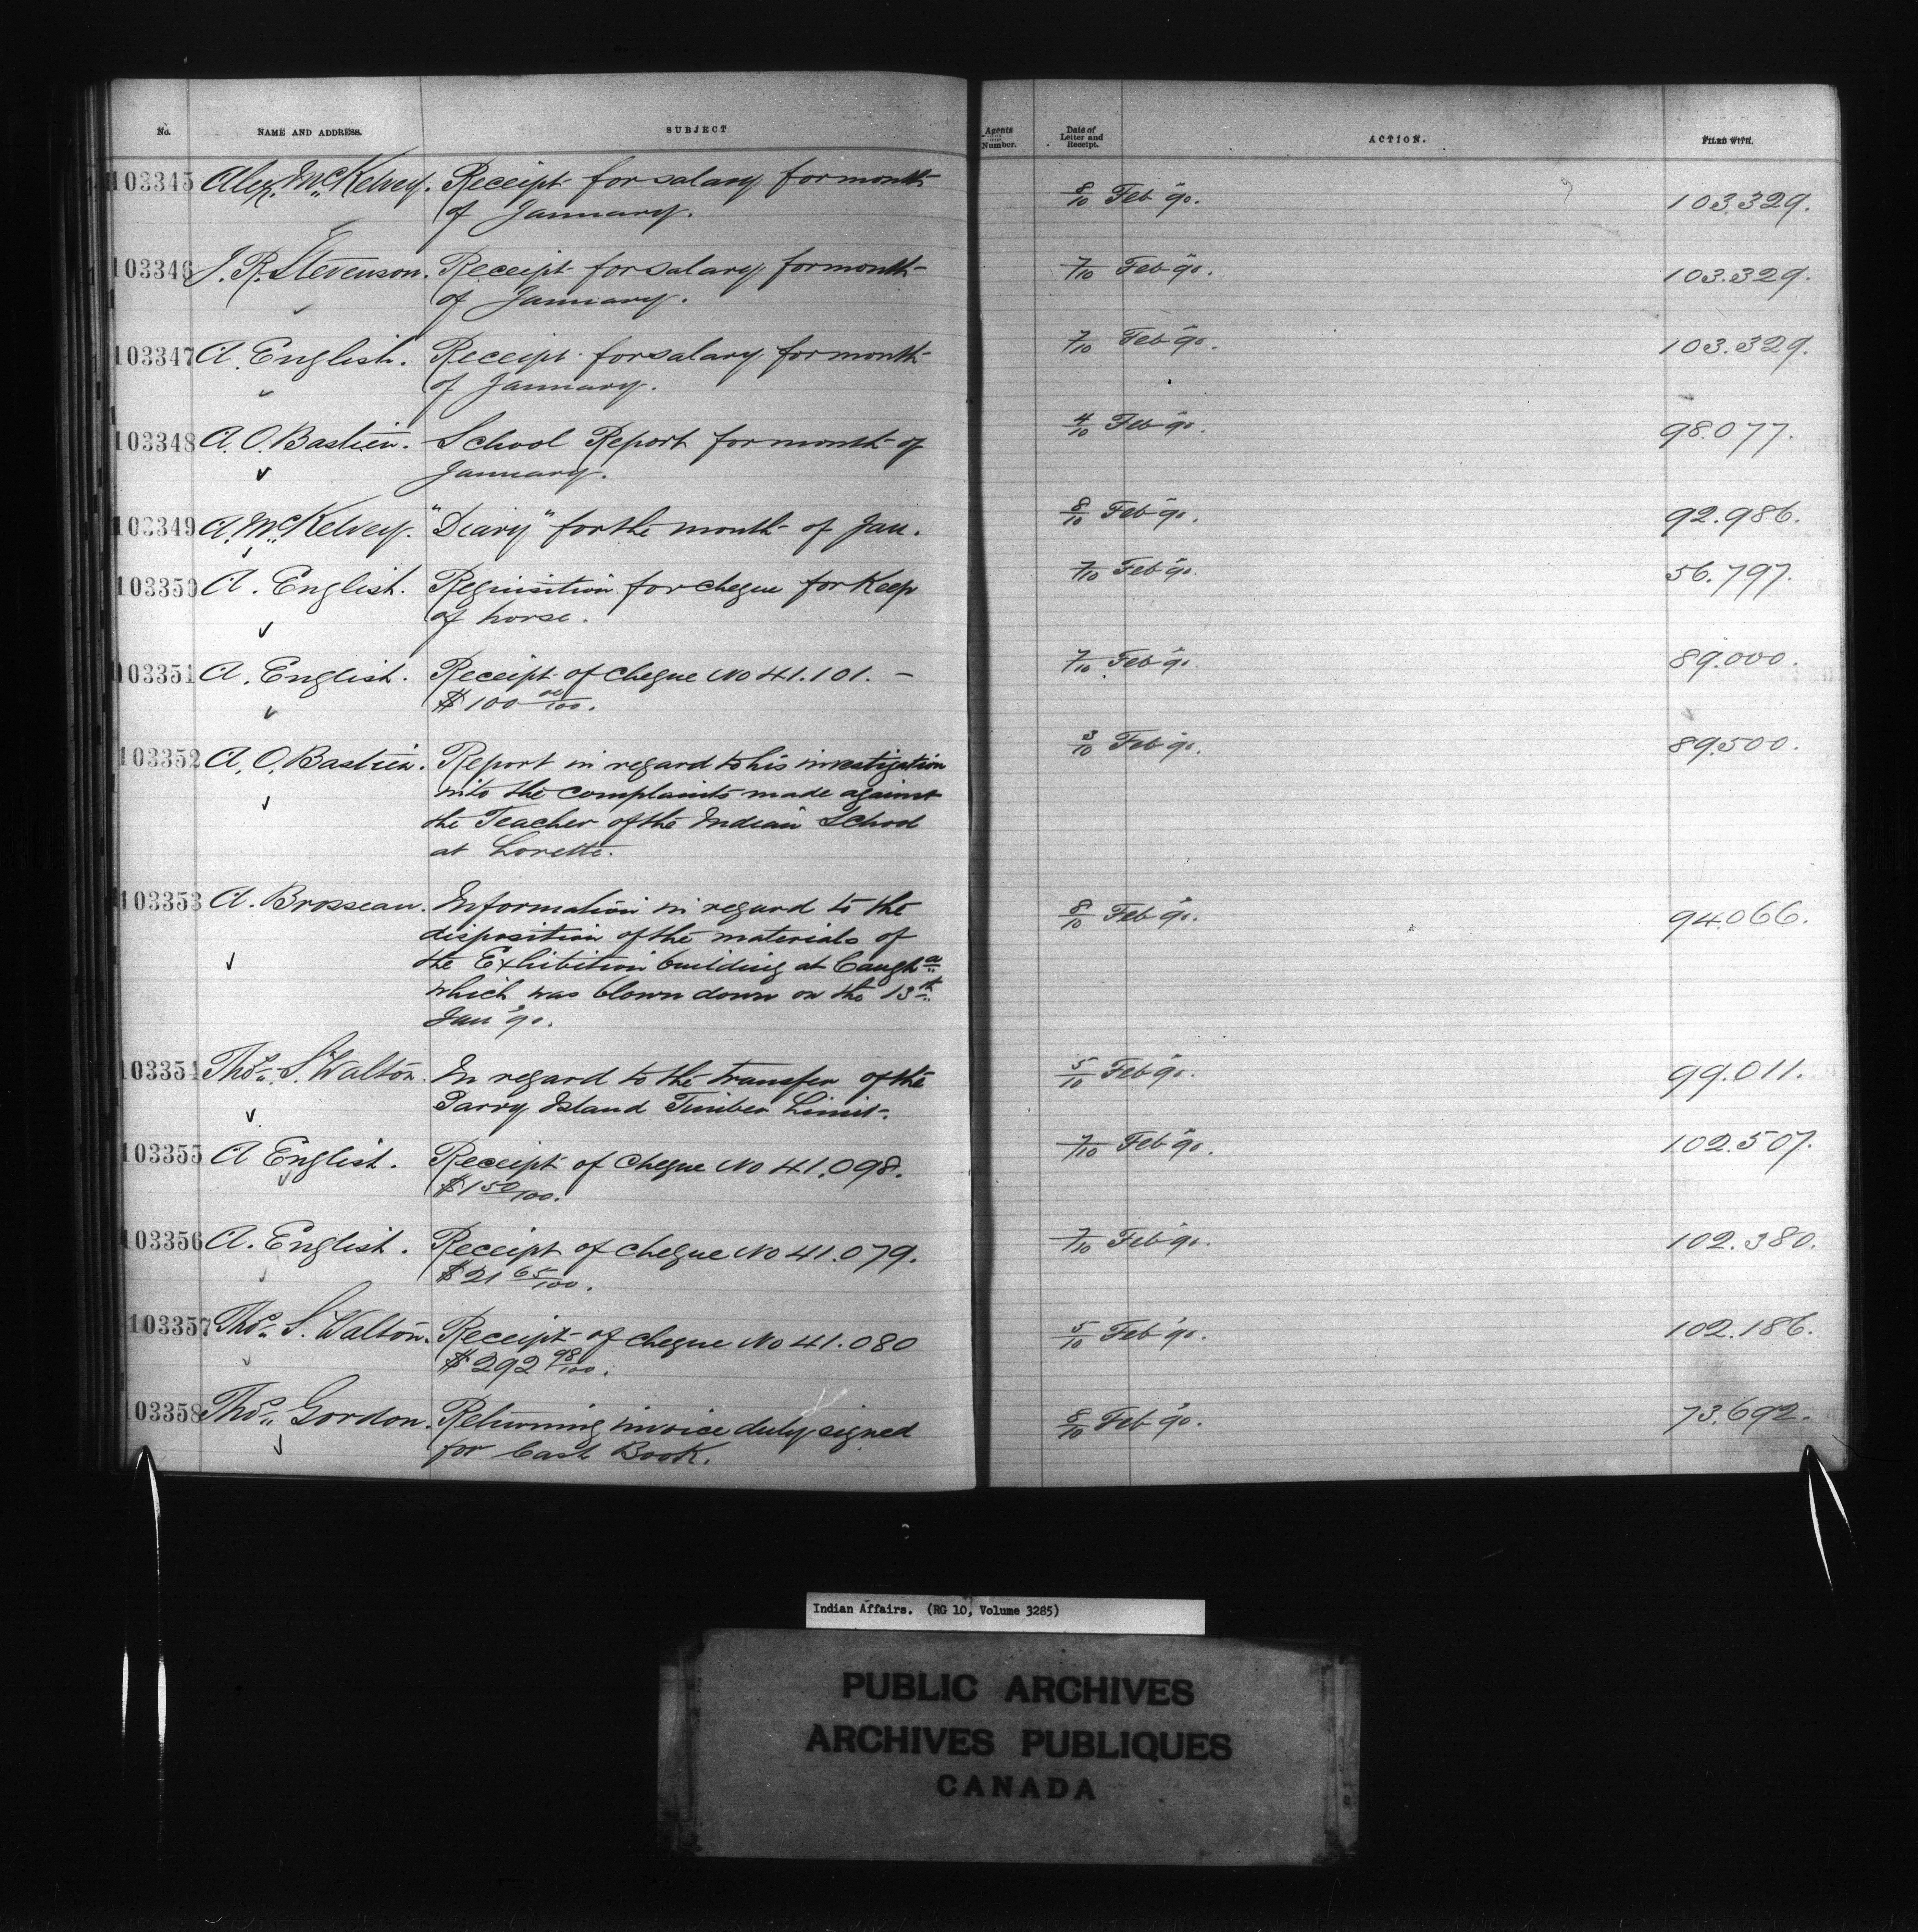 No. NAME AND ADDRESS. SUBJECT Agents Number. Date of Letter and Receipt. ACTION. FILED WITH.
103345 Alex. McKelvey. Receipt for salary for month 8/10 Feb '90. 103.329.
of January.
103346 J. R. Stevenson. Receipt for salary for month 7/10 Feb '90. 103.329.
of January.
103347 A. English. Receipt for salary for month 7/10 Feb '90. 103.329.
of January.
103348 A. O. Bastien. School Report for month of 4/10 Feb '90. 98.077.
January.
103349 A. McKelvey. "Diary" for the month of Jan. 8/10 Feb '90. 92.986.
103350 A. English. Requisition for cheque for Keep 7/10 Feb '90. 56.797.
of horse.
103351 A. English. Receipt of cheque No 41.101. – 7/10 Feb '90. 89.000.
$100 00/100.
103352 A. O. Bastien. Report in regard to his investigation 3/10 Feb '90. 89.500.
into the complaints made against
the Teacher of the Indian School
at Lorette.
103353 A. Brosseau. Information in regard to the 8/10 Feb '90. 94.066.
disposition of the materials of
the Exhibition building at Caugha
which was blown down on the 13th
Jan '90.
103354 Thos. S. Walton. In regard to the transfer of the 5/10 Feb '90. 99.011.
Parry Island Timber Limit.
103355 A English. Receipt of cheque No 41.098. 7/10 Feb '90. 102.507.
$1 50/100.
103356 A. English. Receipt of cheque No 41.079. 7/10 Feb '90. 102.380.
$21 65/100.
103357 Thos. S. Walton. Receipt of cheque No 41.080 5/10 Feb '90. 102.186.
$292 98/100.
103358 Thos. Gordon. Returning invoice duly signed 8/10 Feb '90. 73.692.
for Cash Book.
Indian Affairs. (RG 10, Volume 3285)
PUBLIC ARCHIVES
ARCHIVES PUBLIQUES
CANADA